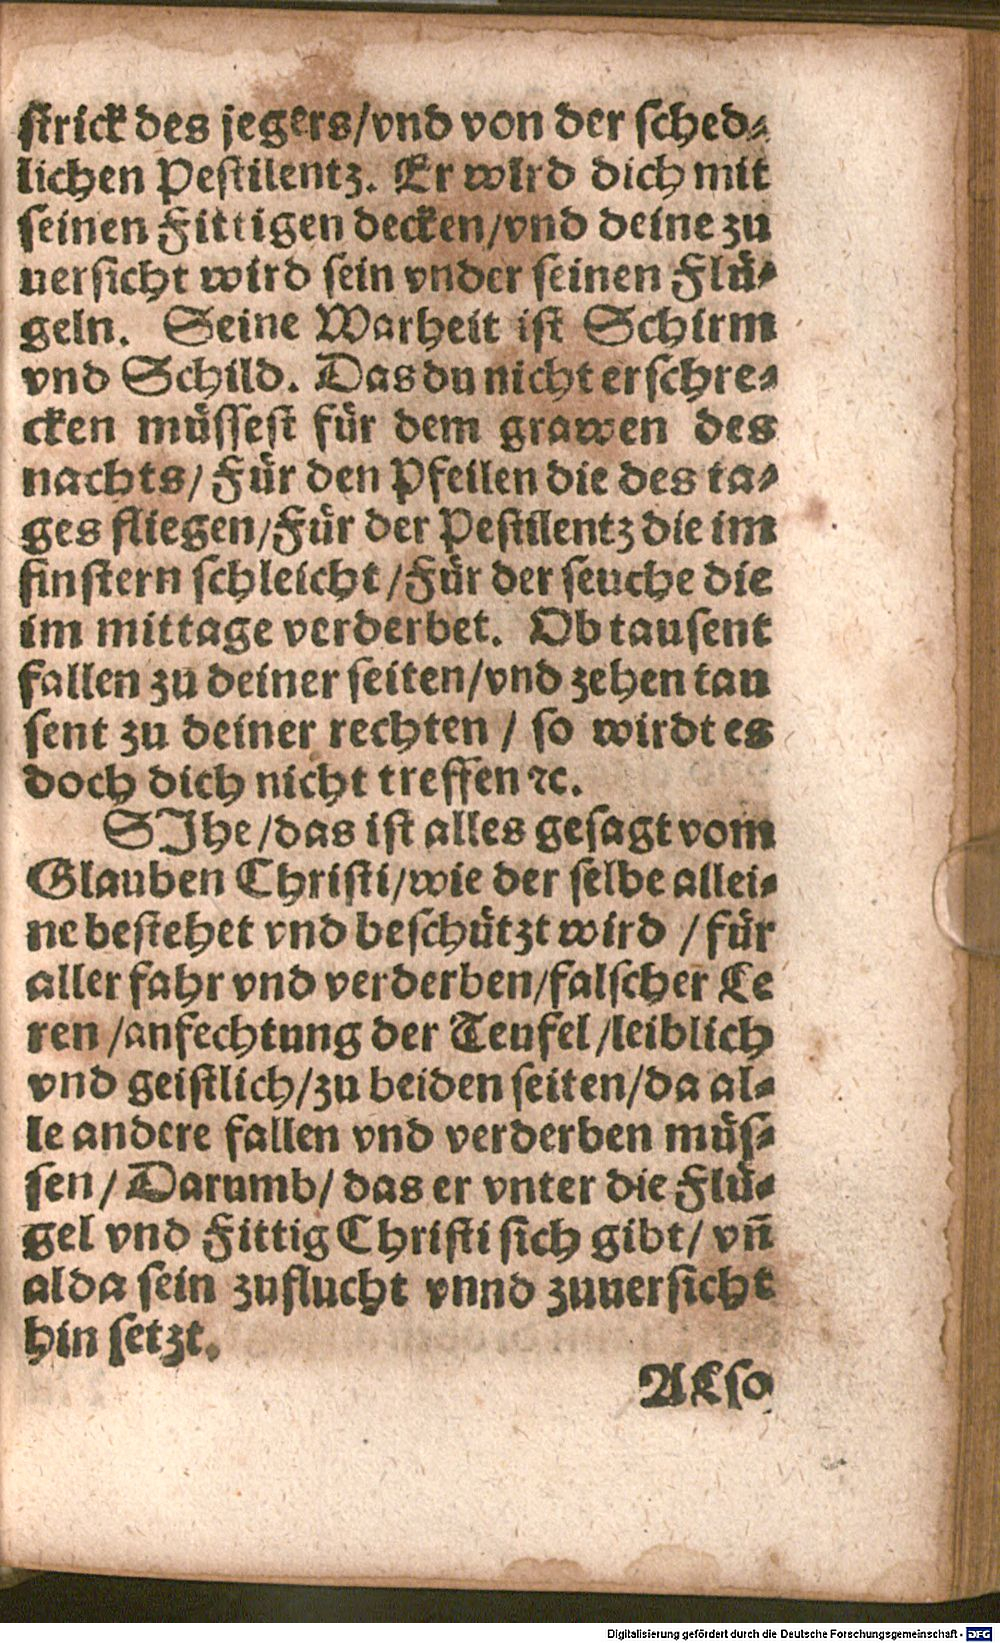 strick des jegers/vnd von der sched⸗
lichen Pestilentz. Er wird dich mit
seinen Fittigen decken/vnd deine zu
uersicht wird sein vnder seinen Flü⸗
geln. Seine Warheit ist Schirm
vnd Schild. Das du nicht erschre⸗
cken müssest für dem grawen des
nachts/ Für den Pfeilen die des ta⸗
ges fliegen/Für der Pestilentz die im
finstern schleicht/Für der seuche die
im mittage verderbet. Ob tausent
fallen zu deiner seiten/vnd zehen tau
sent zu deiner rechten / so wirdt es
doch dich nicht treffen ꝛc.
SIhe/das ist alles gesagt vom
Glauben Christi/wie der selbe allei⸗
ne bestehet vnd beschützt wird /für
aller fahr vnd verderben/falscher Le
ren /anfechtung der Teufel/leiblich
vnd geistlich/zu beiden seiten/da al⸗
le andere fallen vnd verderben müs⸗
sen/ Darumb/ das er vnter die Flü⸗
gel vnd Fittig Christi sich gibt/ vn̄
alda sein zuflucht vnnd zuuersicht
hin setzt.
ALso
Digitalisierung gefördert durch die Deutsche Forschungsgemeinschaft - DFG